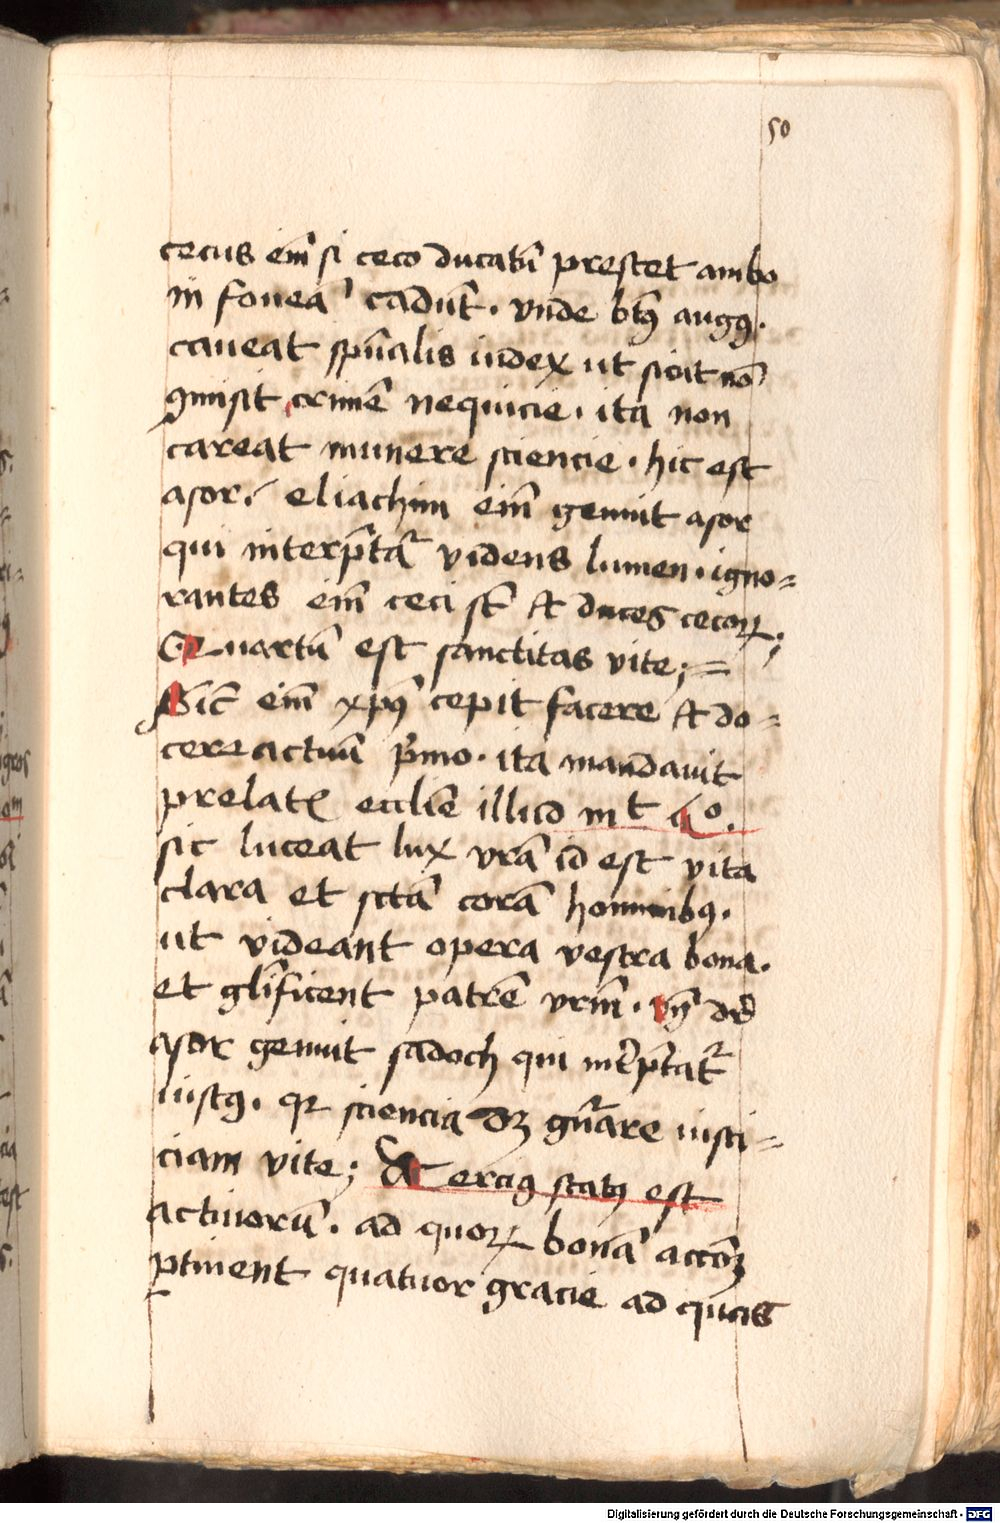 50
cecus em̄ si ceco ducatū prestet ambo
in foueā cadūt. vnde btꝰ augꝰ.
caueat spūalis iudex ut sicut nō
ꝯmisit crimē nequicie. ita non
careat munere sciencie. hic est
asor. eliachim em̄ genuit asor
qui interp̄tat᷑ videns lumen. igno=
rantes em̄ ceci st̄ et duces cecoꝝ;
Quartū est sanctitas vite;=
Sic̄ em̄ xpꝰ cepit facere et do=
cere actuū p̄mo. ita mandauit
prelatꝭ ecclie illud mt qo.
sic luceat lux vrā id est vita
clara et sctā corā hominibꝰ.
ut videant opera vestra bona.
et gl̄ificent patrē vrm̄. vn̄ dr̄
asor genuit sadoch qui int̄p̄tat᷑
iustꝰ. qꝛ sciencia dꝫ gn̄are iusti=
ciam vite; Terciꝰ statꝰ est
actiuorū. ad quoꝝ bonā accōꝫ
ꝑtinent quatuor gracie ad